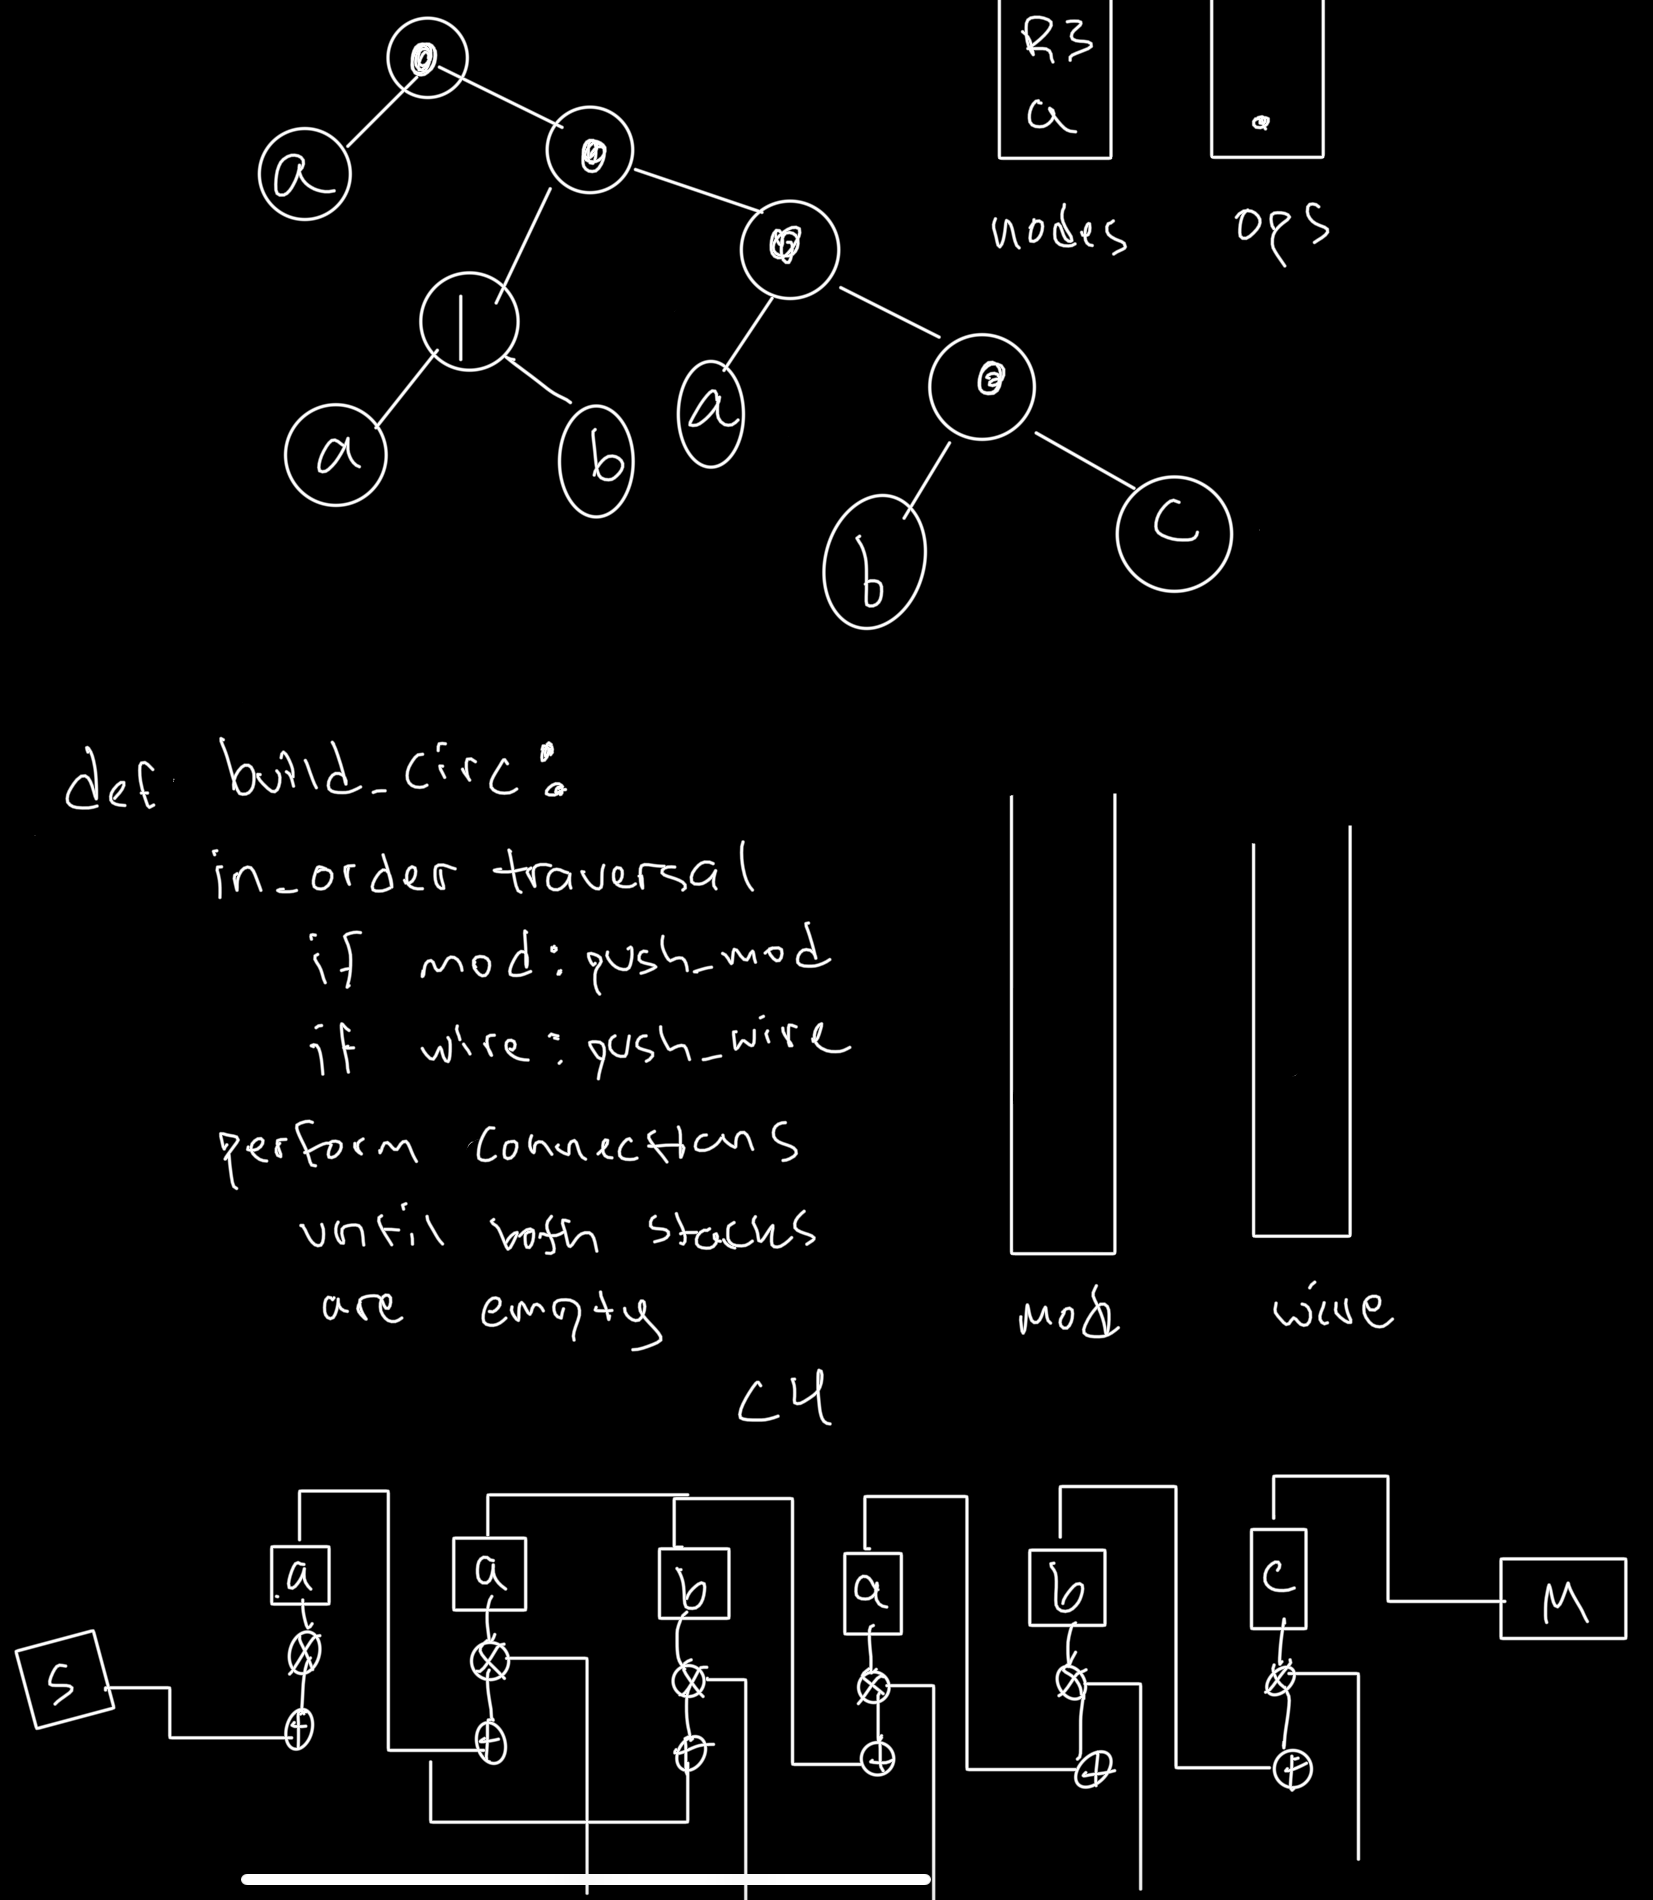 R3
a
.
nodes ops
a
|
a b a
b
c
def build_circ:
in_order traversal
if mod: push_mod
if wire: push_wire
perform connections
until both stacks
are empty
mod wire
C4
a a b a b c
S M